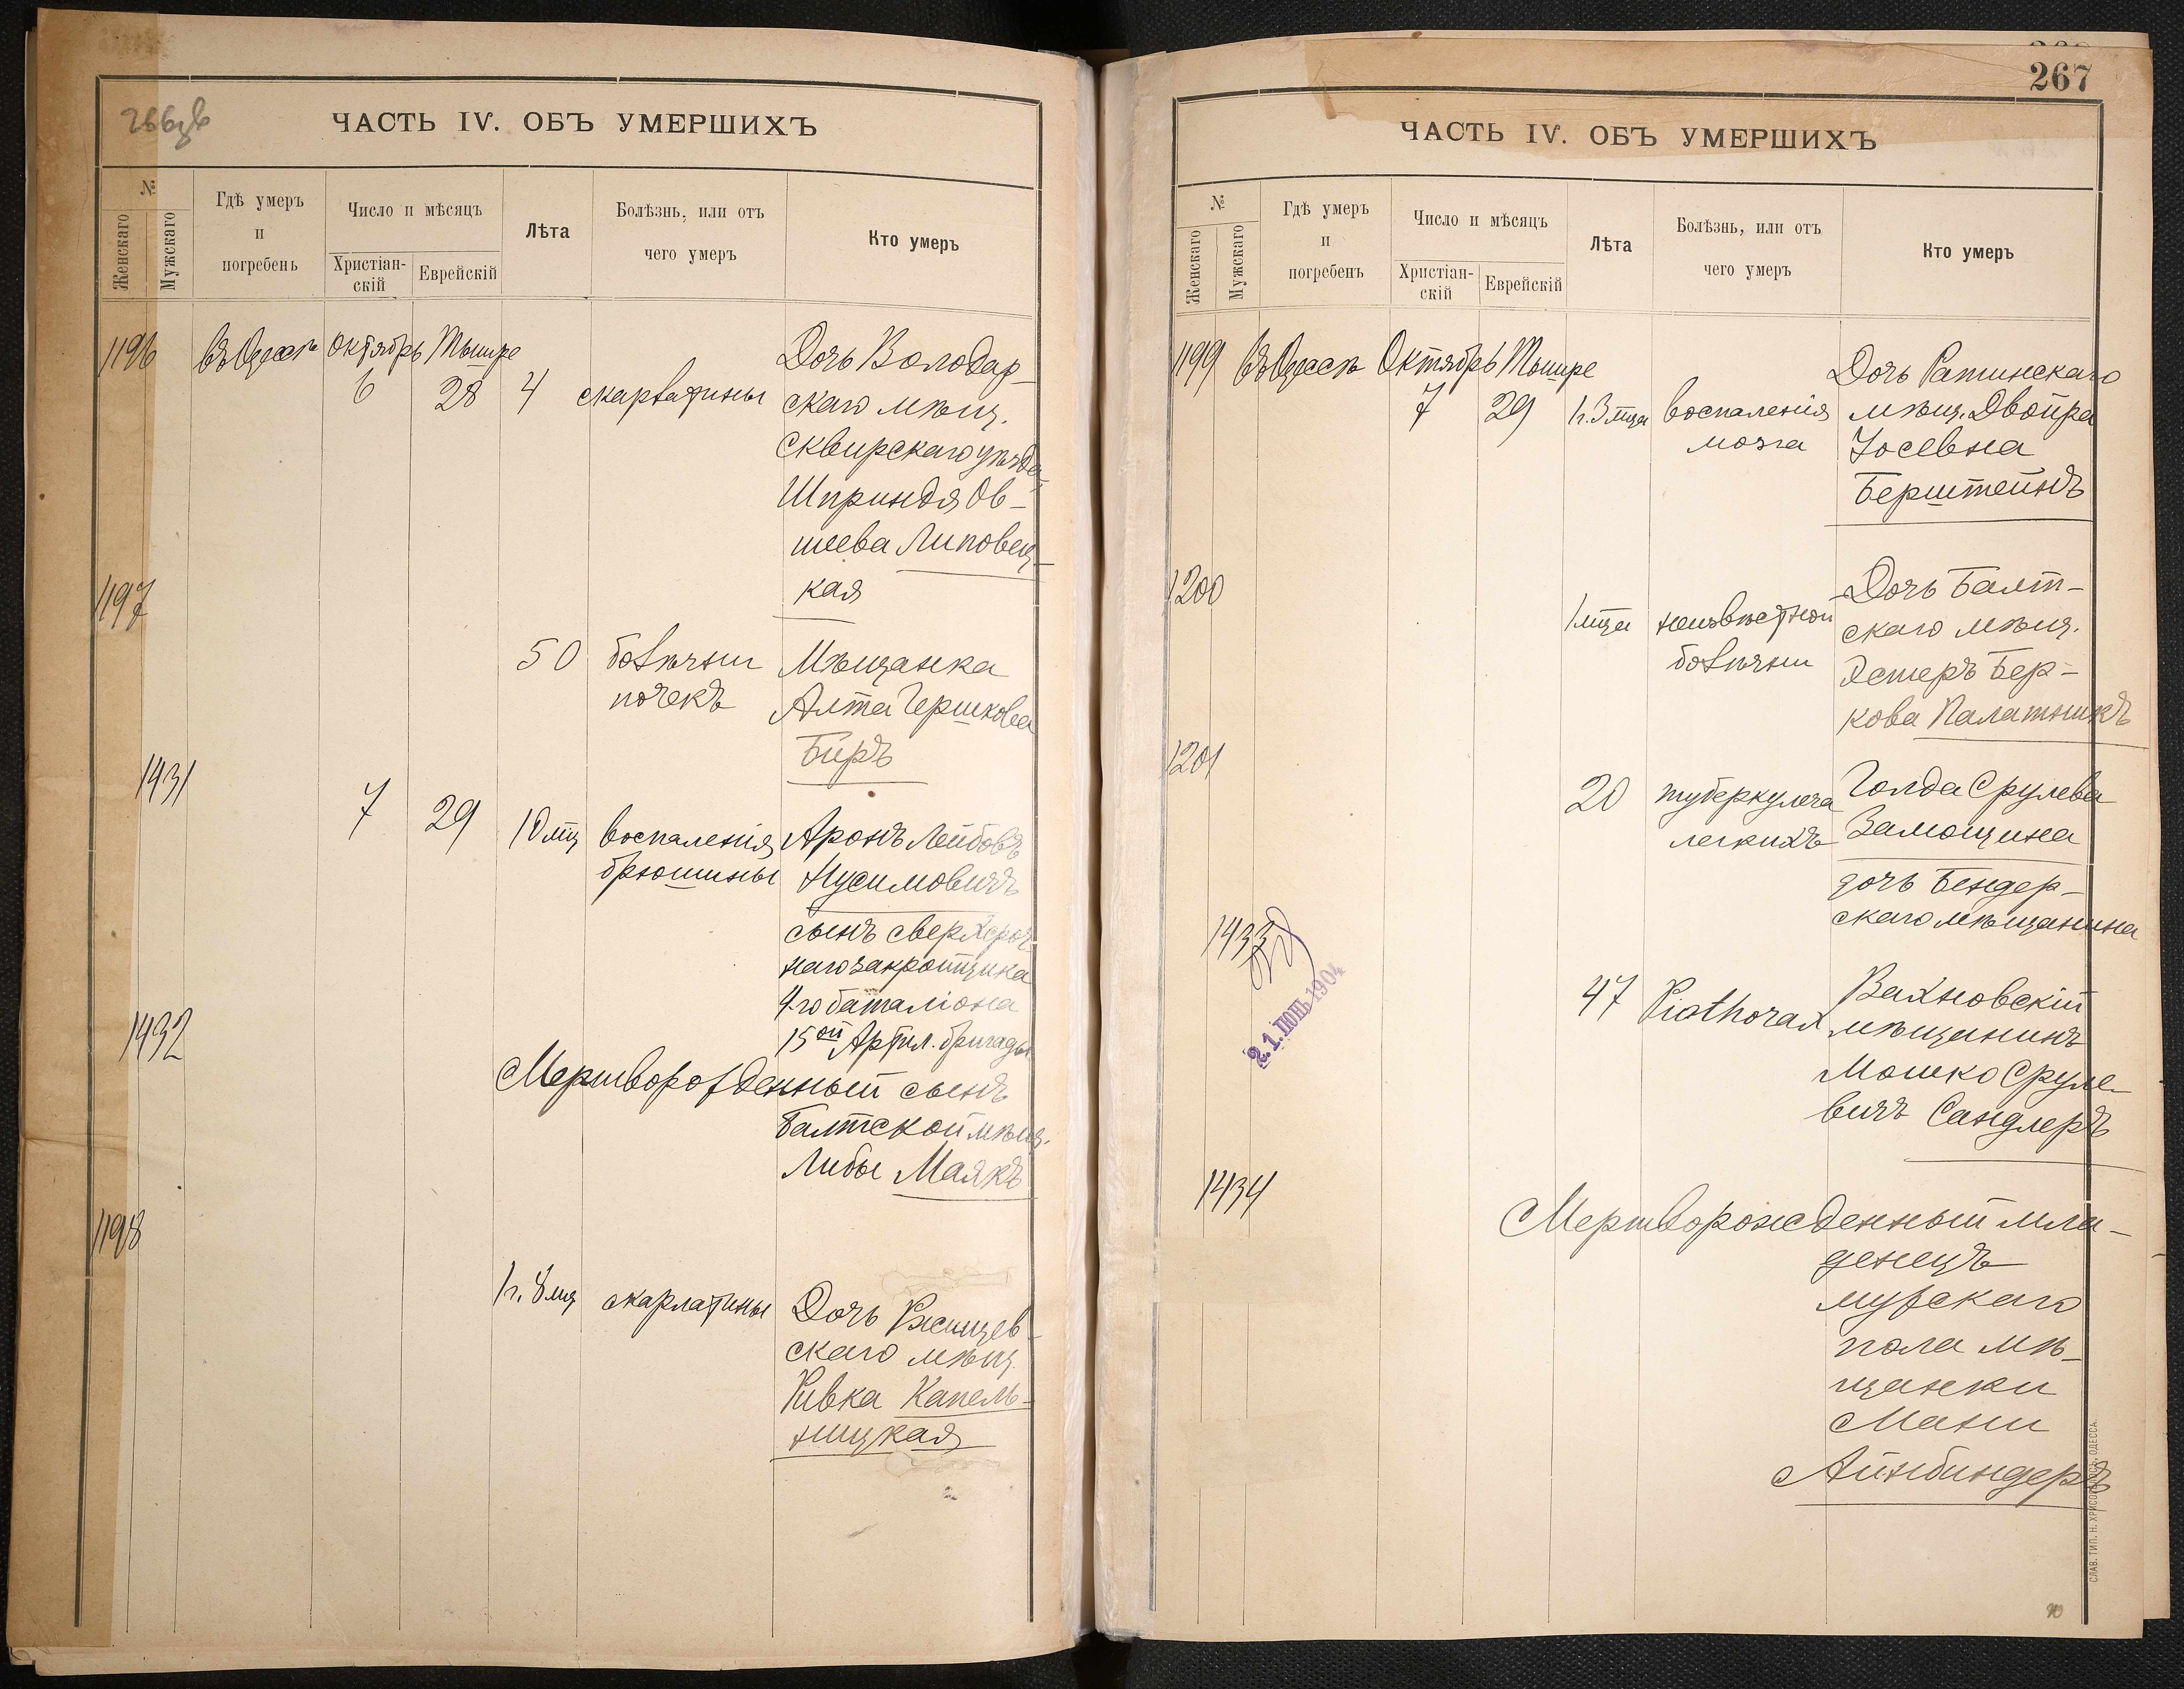 266 об
ЧАСТЬ IV. ОБЪ УМЕРШИХЪ
№
Женскаго
Мужскаго
Гдѣ умеръ
и
погребенъ
Число и мѣсяцъ
Христіан-
скій
Еврейскій
Лѣта
Болѣзнь, или отъ
чего умеръ
Кто умеръ
1196 въ Одессѣ Октябрь Тышре
6 28 4 скарлатины
Дочь Володар-
скаго мѣщ.
Сквирскаго уѣзда
Шприндя Ов-
шеева Липовец-
кая
1197
50 болѣзни
почекъ
Мѣщанка
Алта Гершкова
Биръ
1431
7 29 10 мц воспаленія
брюшины
Аронъ Лейбовъ
Нусимовичъ
сынъ сверхсроч
наго закройщика
4-го баталіона
15ой Артил. бригады
1432
Мертворожденный сынъ
Балтской мѣщ.
Либы Маякъ
1198
1 г. 8 мц скарлатины
Дочь Ржищев-
скаго мѣщ.
Ривка Капель-
ницкая
267
ЧАСТЬ IV. ОБЪ УМЕРШИХЪ
№
Женскаго
Мужскаго
Гдѣ умеръ
и
погребенъ
Число и мѣсяцъ
Христіан-
скій
Еврейскій
Лѣта
Болѣзнь, или отъ
чего умеръ
Кто умеръ
1199 въ Одессѣ Октябрь Тышре
7 29 1 г. 3 мца воспаленія
мозга
Дочь Ратинскаго
мѣщ. Двойра
Іосевна
Берштейнъ
1200
1 мца неизвѣстной
болѣзни
Дочь Балт-
скаго мѣщ.
Эстеръ Бер-
кова Палатникъ
1201
20 туберкулеза
легкихъ
Голда Срулева
Замощина
дочь Бендер-
скаго мѣщанина
1433
21. ІЮНЬ 1904
47
Вахновскій
мѣщанинъ
Мошко Сруле-
вичъ Сандлеръ
1434
Мертворожденный мла-
денецъ
мужскаго
пола мѣ-
щанки
Мани
Айнбиндеръ
СЛАВ. ТИП. Н. ХРИСОГЕЛОСЪ, ОДЕССА.